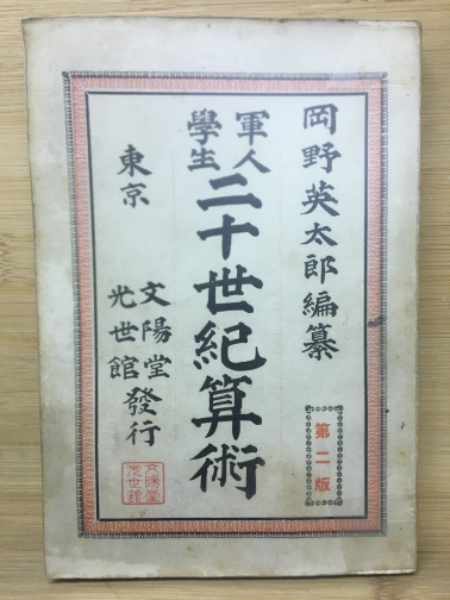 岡野英太郎編纂
第二版
軍人
學生
二十世紀算術
東京
文陽堂
光世館
發行
文陽堂
光世館